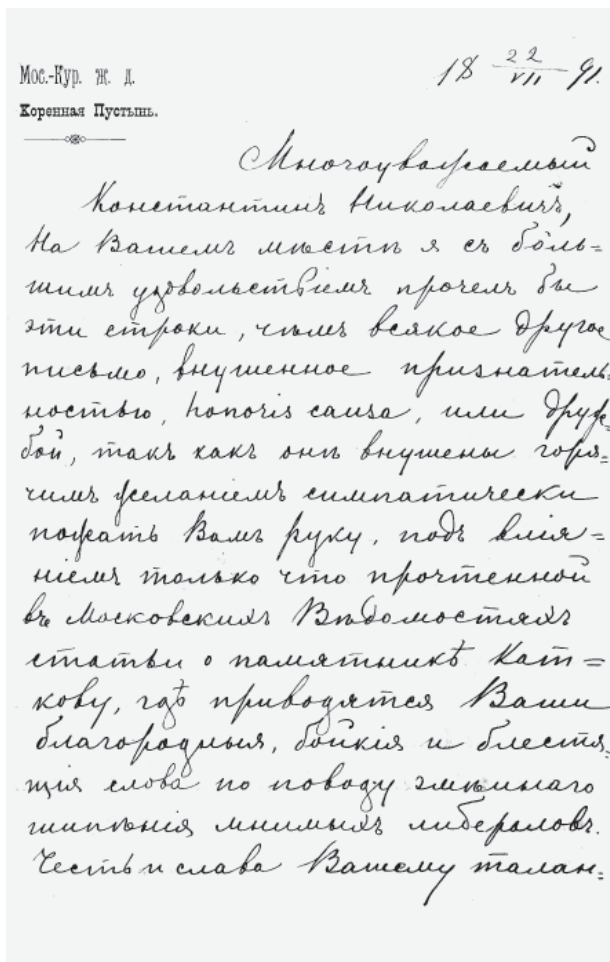 Мос.-Кур. ж. д.
Коренная Пустынь.
18 22/VII 91.
Многоуважаемый
Константинъ Николаевичъ,
На Вашемъ мѣстѣ я съ бóль=
шимъ удовольствіемъ прочелъ бы
эти строки, чѣмъ всякое другое
письмо, внушенное признатель=
ностью, honoris causa, или друж=
бой, такъ какъ онѣ внушены горя=
чимъ желаніемъ симпатически
пожать Вамъ руку, подъ влія=
ніемъ только что прочтенной
въ Московскихъ Вѣдомостяхъ
статьи о памятникѣ Кат=
кову, гдѣ приводятся Ваши
благородныя, бойкія и блестя=
щія слова по поводу змѣинаго
шипѣнія мнимыхъ либераловъ.
Честь и слава Вашему талан=